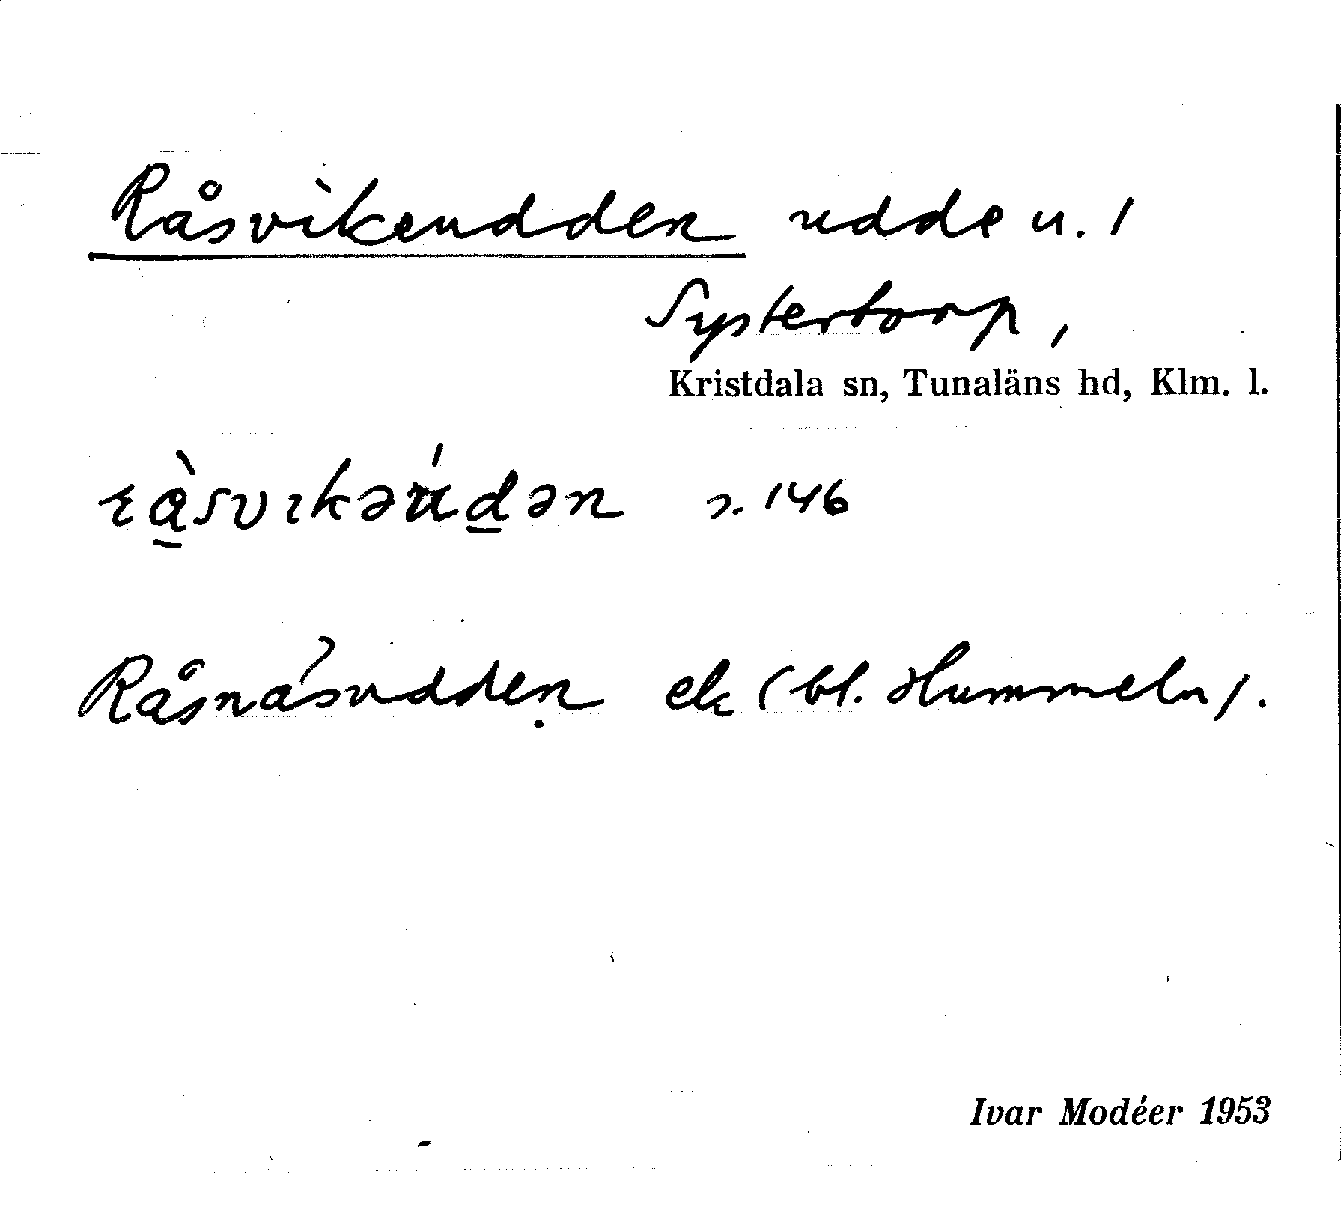 Råsvikeudden udde u. /
Systertorp,
Kristdala sn, Tunaläns hd, Klm. l.
ràsvikəúdən s. 146
Råsnäsudden ek (bl. Hummeln).
Ivar Modéer 1953